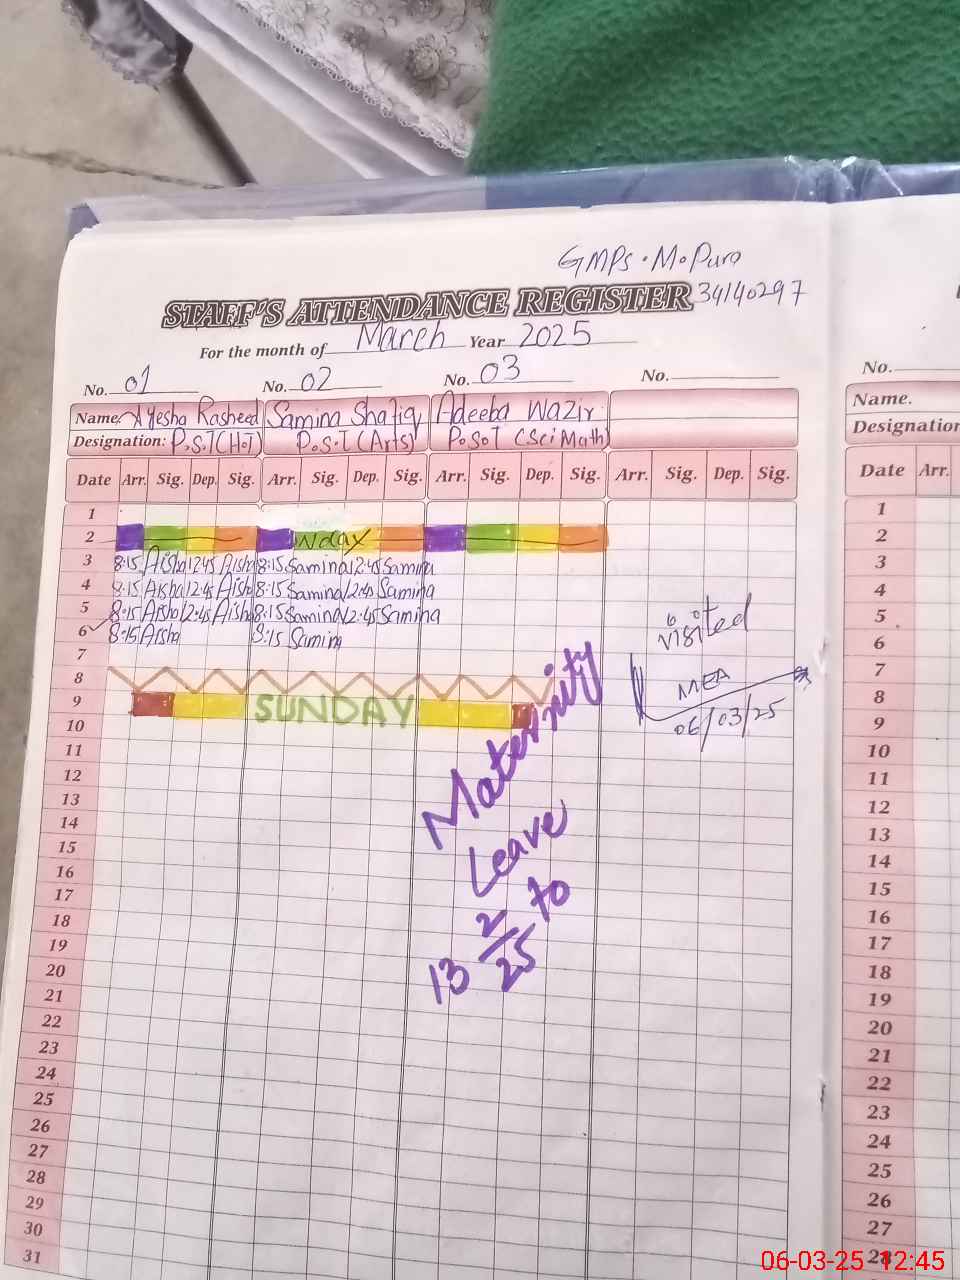 GMPS. M. Pura
STAFF'S ATTENDANCE REGISTER 34140297
For the month of March Year 2025
No. 01 No. 02 No. 03 No.
Name. Ayesha Rasheed Samina Shafiq Adeeba Wazir
Designation: P.S.T(H.T) P.S.T (Arts) P.S.T (Sci Math)
Date Arr. Sig. Dep. Sig. Arr. Sig. Dep. Sig. Arr. Sig. Dep. Sig. Arr. Sig. Dep. Sig.
1
2 nday
3 8:15 Aisha 12:45 Aisha 8:15 Samina 12:45 Samina
4 8:15 Aisha 12:45 Aisha 8:15 Samina 12:45 Samina
5 8:15 Aisha 12:45 Aisha 8:15 Samina 12:45 Samina
6 8:15 Aisha 8:15 Samina
7
8
9 SUNDAY
10
11
12
13
14
15
16
17
18
19
20
21
22
23
24
25
26
27
28
29
30
31
Maternity
Leave
13 2/25 to
visited
MEA
06/03/25
No.
Name.
Designation
Date Arr.
1
2
3
4
5
6
7
8
9
10
11
12
13
14
15
16
17
18
19
20
21
22
23
24
25
26
27
28
06-03-25 12:45